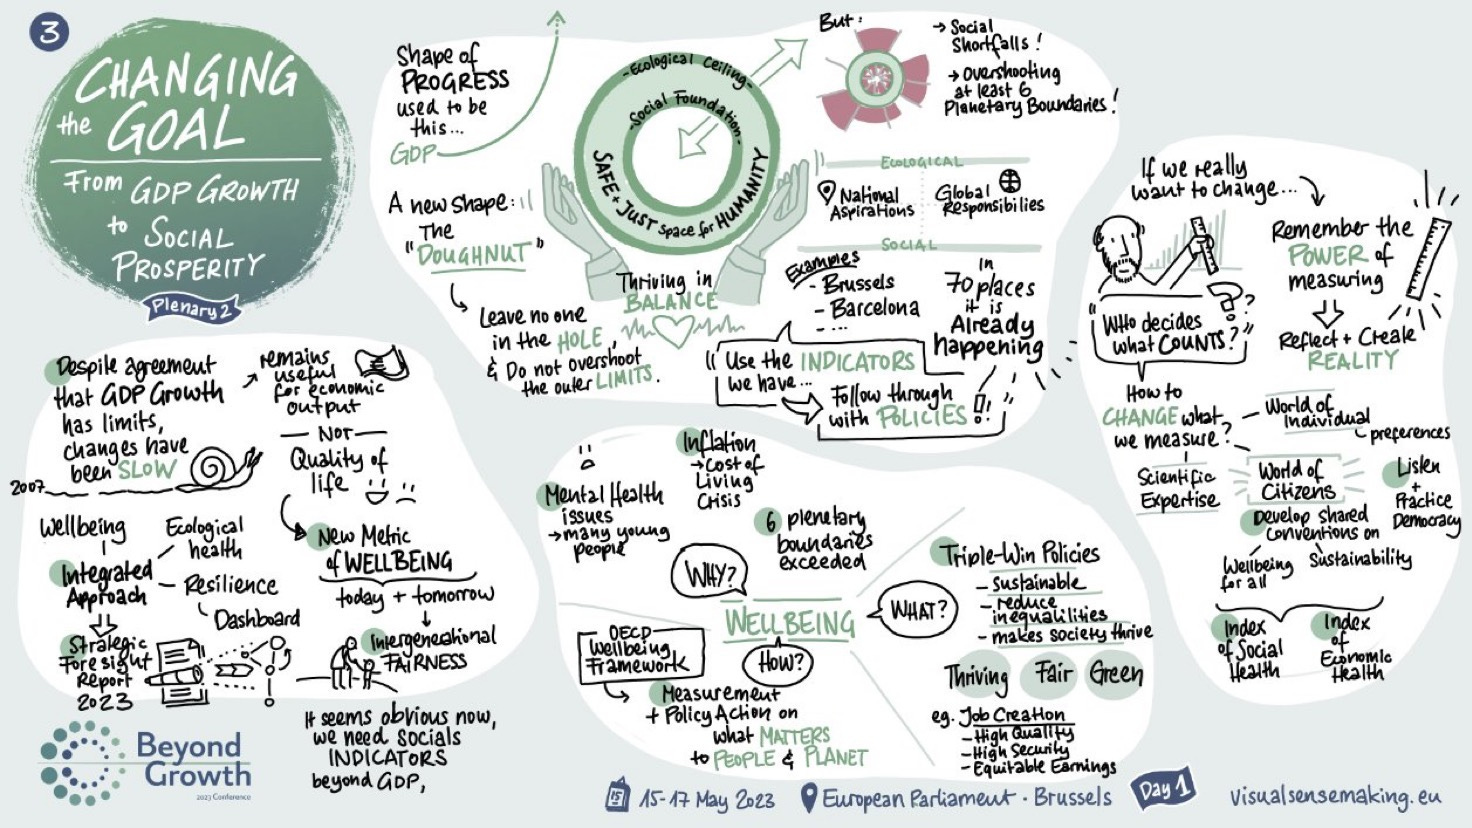 3
CHANGING
the GOAL
From GDP GROWTH
to SOCIAL
PROSPERITY
Plenary 2
Shape of
PROGRESS
used to be
this...
GDP
A new shape:
The
"DOUGHNUT"
Leave no one
in the HOLE,
& Do not overshoot
the outer LIMITS.
- Ecological Ceiling -
- Social Foundation -
SAFE + JUST Space for HUMANITY
Thriving in
BALANCE
But:
→ Social
Shortfalls!
→ Overshooting
at least 6
Planetary Boundaries!
ECOLOGICAL
National
Aspirations
Global
Responsibilies
SOCIAL
Examples
- Brussels
- Barcelona
- ...
In
70 places
it is
Already
happening
"Use the INDICATORS
we have...
Follow through
with POLICIES!"
If we really
want to change...
Remember the
POWER of
measuring
Reflect + Create
REALITY
"WHO decides
what COUNTS?"
?
How to
CHANGE what
we measure?
World of
Individual
preferences
Scientific
Expertise
World of
Citizens
Listen
+
Practice
Democracy
Develop shared
Conventions on
Wellbeing
for all
Sustainability
Index
of Social
Health
Index
of
Economic
Health
Despite agreement
that GDP Growth
has limits,
changes have
been SLOW
2007
remains
useful
for economic
output
NOT
Quality of
life
New Metric
of WELLBEING
today + tomorrow
Intergenerational
FAIRNESS
Wellbeing
Integrated
Approach
Ecological
health
Resilience
Dashboard
Strategic
Foresight
Report
2023
It seems obvious now,
we need SOCIALS
INDICATORS
beyond GDP,
Mental Health
issues
→ many young
people
Inflation
→ Cost of
Living
Crisis
6 plenetary
boundaries
exceeded
WHY?
WELLBEING
WHAT?
HOW?
OECD
Wellbeing
Framework
Measurement
+ Policy Action on
what MATTERS
to PEOPLE & PLANET
Triple-Win Policies
- sustainable
- reduce
inequalities
- makes society thrive
Thriving Fair Green
eg. Job Creation
- High Quality
- High Security
- Equitable Earnings
Beyond
Growth
2023 Conference
15
15-17 May 2023
European Parliament · Brussels
Day 1
visualsensemaking.eu